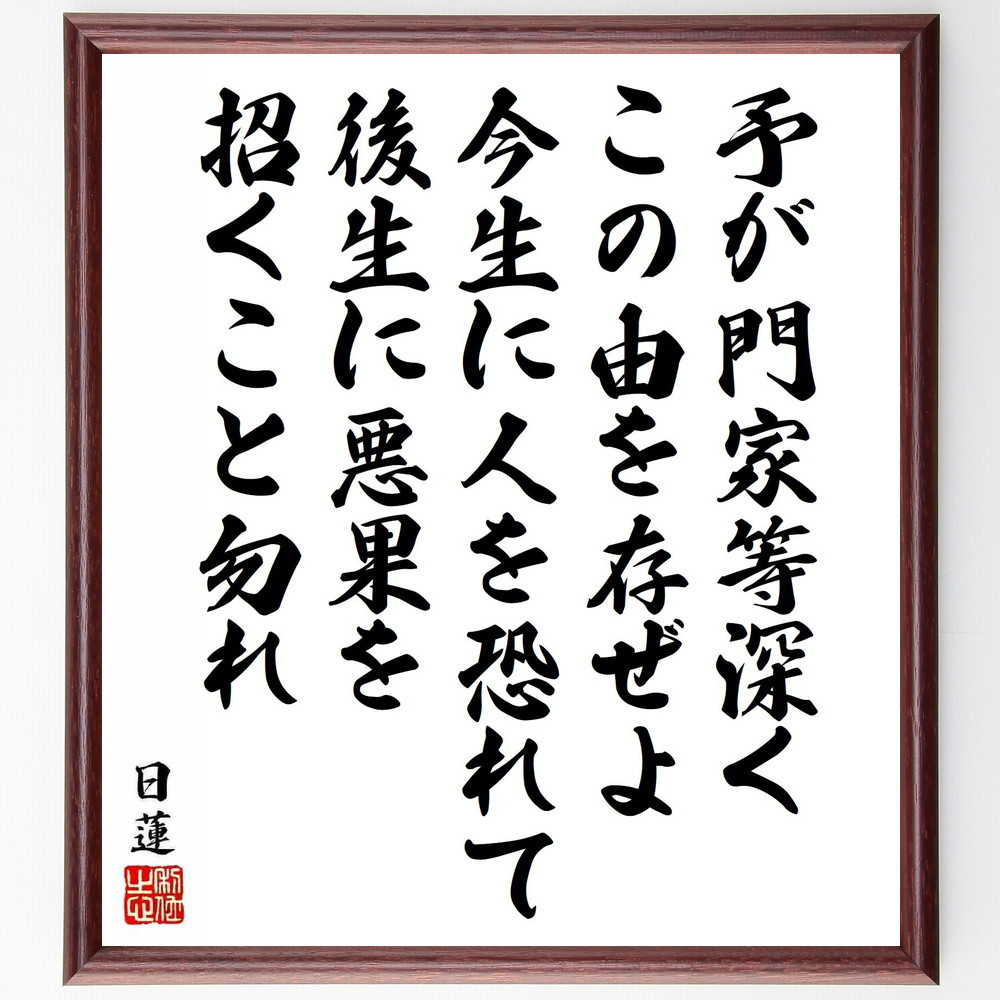 予が門家等深く
この由を存ぜよ
今生に人を恐れて
後生に悪果を
招くこと勿れ
日蓮